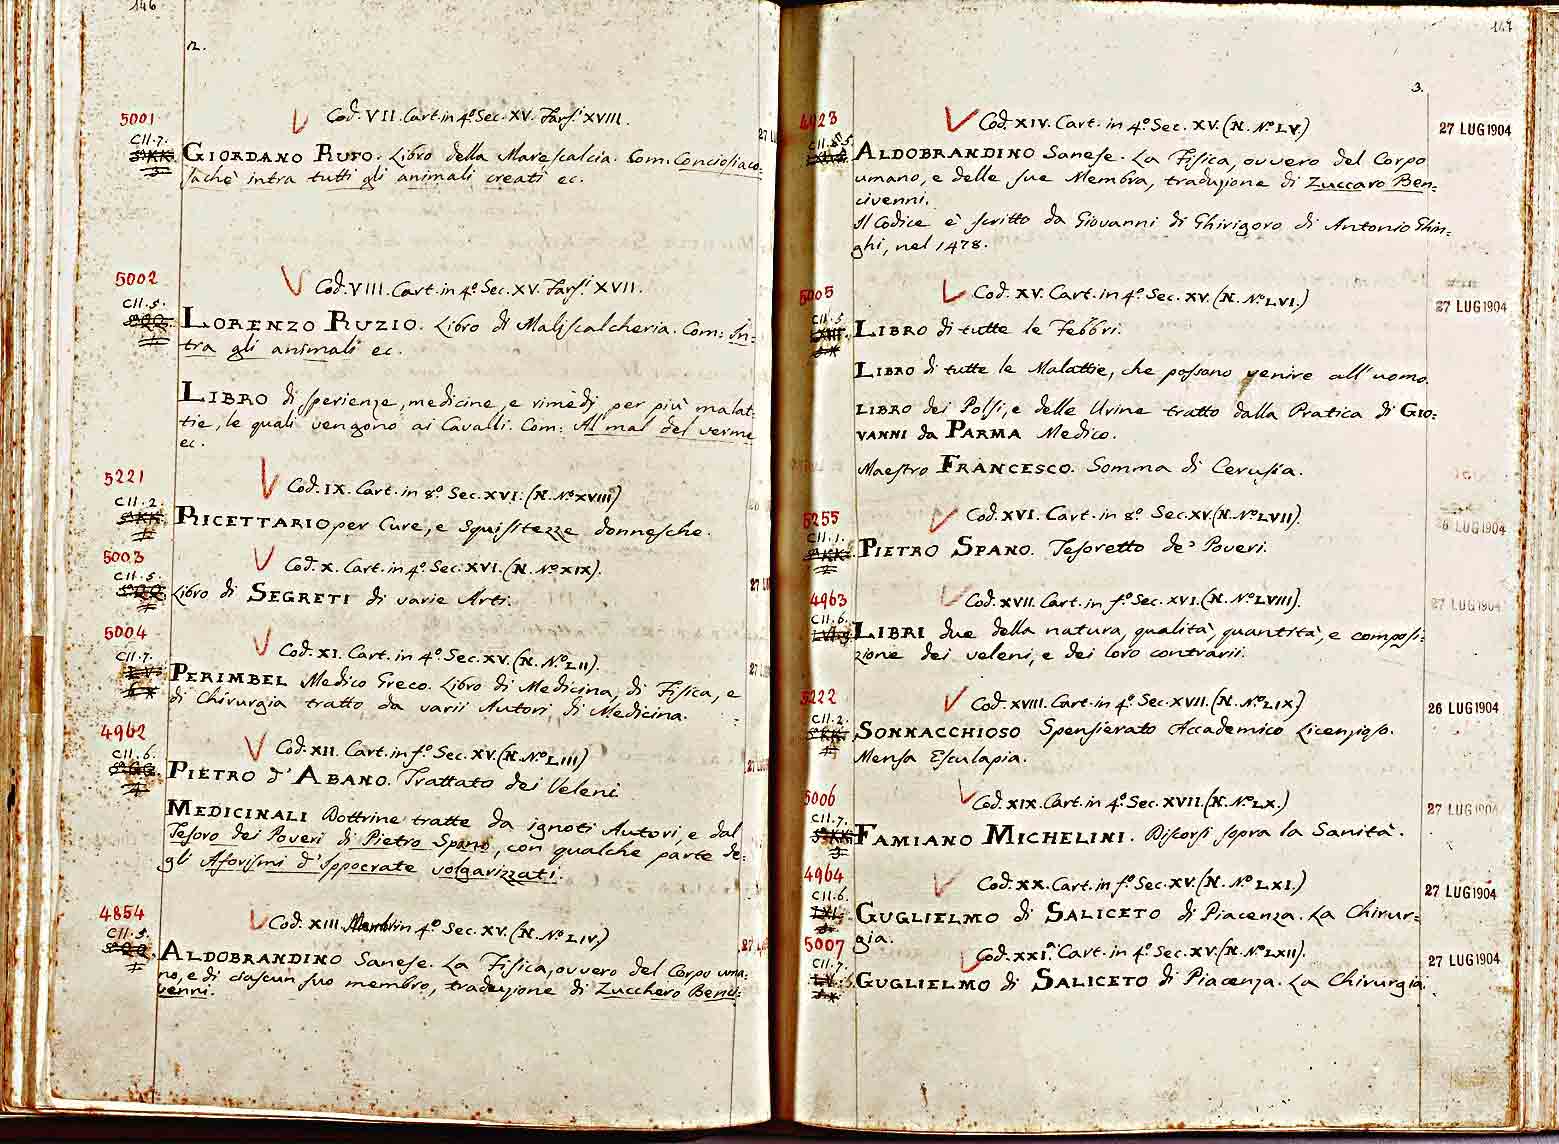 146
12.
5001
Cod. VII. Cart. in 4º. Sec. XV. Farsi. XVIII.
CII. 7.
GIORDANO RUFO. Libro della Marescalcia. Com. Conciosiaco-
sachè intra tutti gli animali creati ec.
5002
Cod. VIII. Cart. in 4º. Sec. XV. Farsi. XVII.
CII. 5.
LORENZO RUZIO. Libro di Maliscalcheria. Com: In-
tra gli animali ec.
LIBRO di sperienze, medicine, e rimedj per più malat-
tie, le quali vengono ai Cavalli. Com: Al mal del verme
ec.
5221
Cod. IX. Cart. in 8º. Sec. XVI. (N. Nº XVIII)
CII. 2.
RICETTARIO per Cure, e Squisitezze donnesche.
5003
Cod. X. Cart. in 4º. Sec. XVI. (N. Nº XIX).
CII. 5.
Libro di SEGRETI di varie Arti.
5004
Cod. XI. Cart. in 4º. Sec. XV. (N. Nº LII).
CII. 7.
PERIMBEL Medico Greco. Libro di Medicina, di Fisica, e
di Chirurgia tratto da varii Autori di Medicina.
4962
Cod. XII. Cart. in fº. Sec. XV. (N. Nº LIII)
CII. 6.
PIETRO d'ABANO. Trattato dei Veleni
MEDICINALI Dottrine tratte da ignoti Autori, e dal
Tesoro dei Poveri di Pietro Spano, con qualche parte de-
gli Aforismi d'Ippocrate volgarizzati.
4854
Cod. XIII. Memb. in 4º. Sec. XV. (N. Nº LIV.)
CII. 5.
ALDOBRANDINO Sanese. La Fisica, ovvero del Corpo uma-
no, e di ciascun suo membro, traduzione di Zucchero Beni-
venni.
147
3.
4923
Cod. XIV. Cart. in 4º. Sec. XV. (N. Nº LV.)
27 LUG 1904
ALDOBRANDINO Sanese. La Fisica, ovvero del Corpo
umano, e delle sue Membra, traduzione di Zuccaro Ben-
civenni.
Il Codice è scritto da Giovanni di Ghirigoro di Antonio Ghin-
ghi, nel 1478.
5005
Cod. XV. Cart. in 4º. Sec. XV. (N. Nº LVI.)
27 LUG 1904
CII. 5
LIBRO di tutte le Febbri.
LIBRO di tutte le Malattie, che possano venire all'uomo.
LIBRO dei Polsi, e delle Urine tratto dalla Pratica di GIO-
VANNI da PARMA Medico.
Maestro FRANCESCO. Somma di Cerusia.
5255
Cod. XVI. Cart. in 8º. Sec. XV. (N. Nº LVII).
26 LUG 1904
CII. 1.
PIETRO SPANO. Tesoretto de' Poveri.
4963
Cod. XVII. Cart. in fº. Sec. XVI. (N. Nº LVIII).
27 LUG 1904
CII. 6.
LIBRI due della natura, qualità, quantità, e composi-
zione dei veleni, e dei loro contrarii.
5222
Cod. XVIII. Cart. in 4º. Sec. XVII. (N. Nº LIX.)
26 LUG 1904
CII. 2.
SONNACCHIOSO Spensierato Accademico Licenzioso.
Mensa Esculapia.
5006
Cod. XIX. Cart. in 4º. Sec. XVII. (N. Nº LX.)
27 LUG 1904
CII. 7.
FAMIANO MICHELINI. Discorsi sopra la Sanità.
4964
Cod. XX. Cart. in fº. Sec. XV. (N. Nº LXI.)
27 LUG 1904
CII. 6.
GUGLIELMO di SALICETO di Piacenza. La Chirur-
gia.
5007
Cod. XXI. Cart. in 4º. Sec. XV. (N. Nº LXII).
27 LUG 1904
CII. 7.
GUGLIELMO di SALICETO di Piacenza. La Chirurgia.